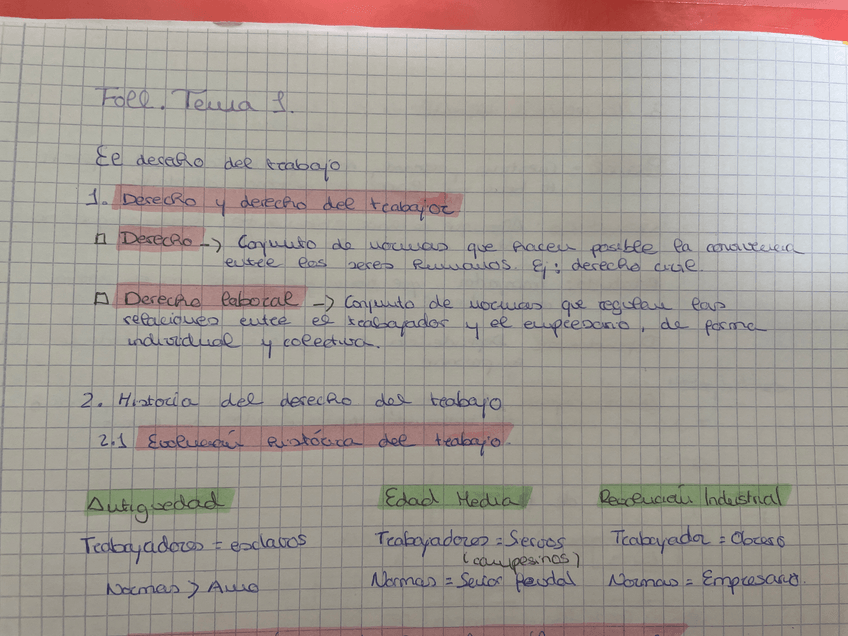 Foll. Tema 1.
El derecho del trabajo
1. Derecho y derecho del trabajor
□ Derecho → Conjunto de normas que hacen posible la convivencia
entre los seres humanos. Ej: derecho civil.
□ Derecho laboral → Conjunto de normas que regulan las
relaciones entre el trabajador y el empresario, de forma
individual y colectiva.
2. Historia del derecho del trabajo
2.1 Evolución histórica del trabajo.
Antiguedad Edad Media Revolución Industrial
Trabajadores = esclavos Trabajadores = Siervos Trabajador = Obrero
(campesinos)
Normas > Amo Normas = Señor feudal Normas = Empresario.